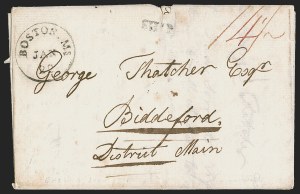 BOSTON. Ms
JAN
George Thatcher Esqr
Biddeford
District Main